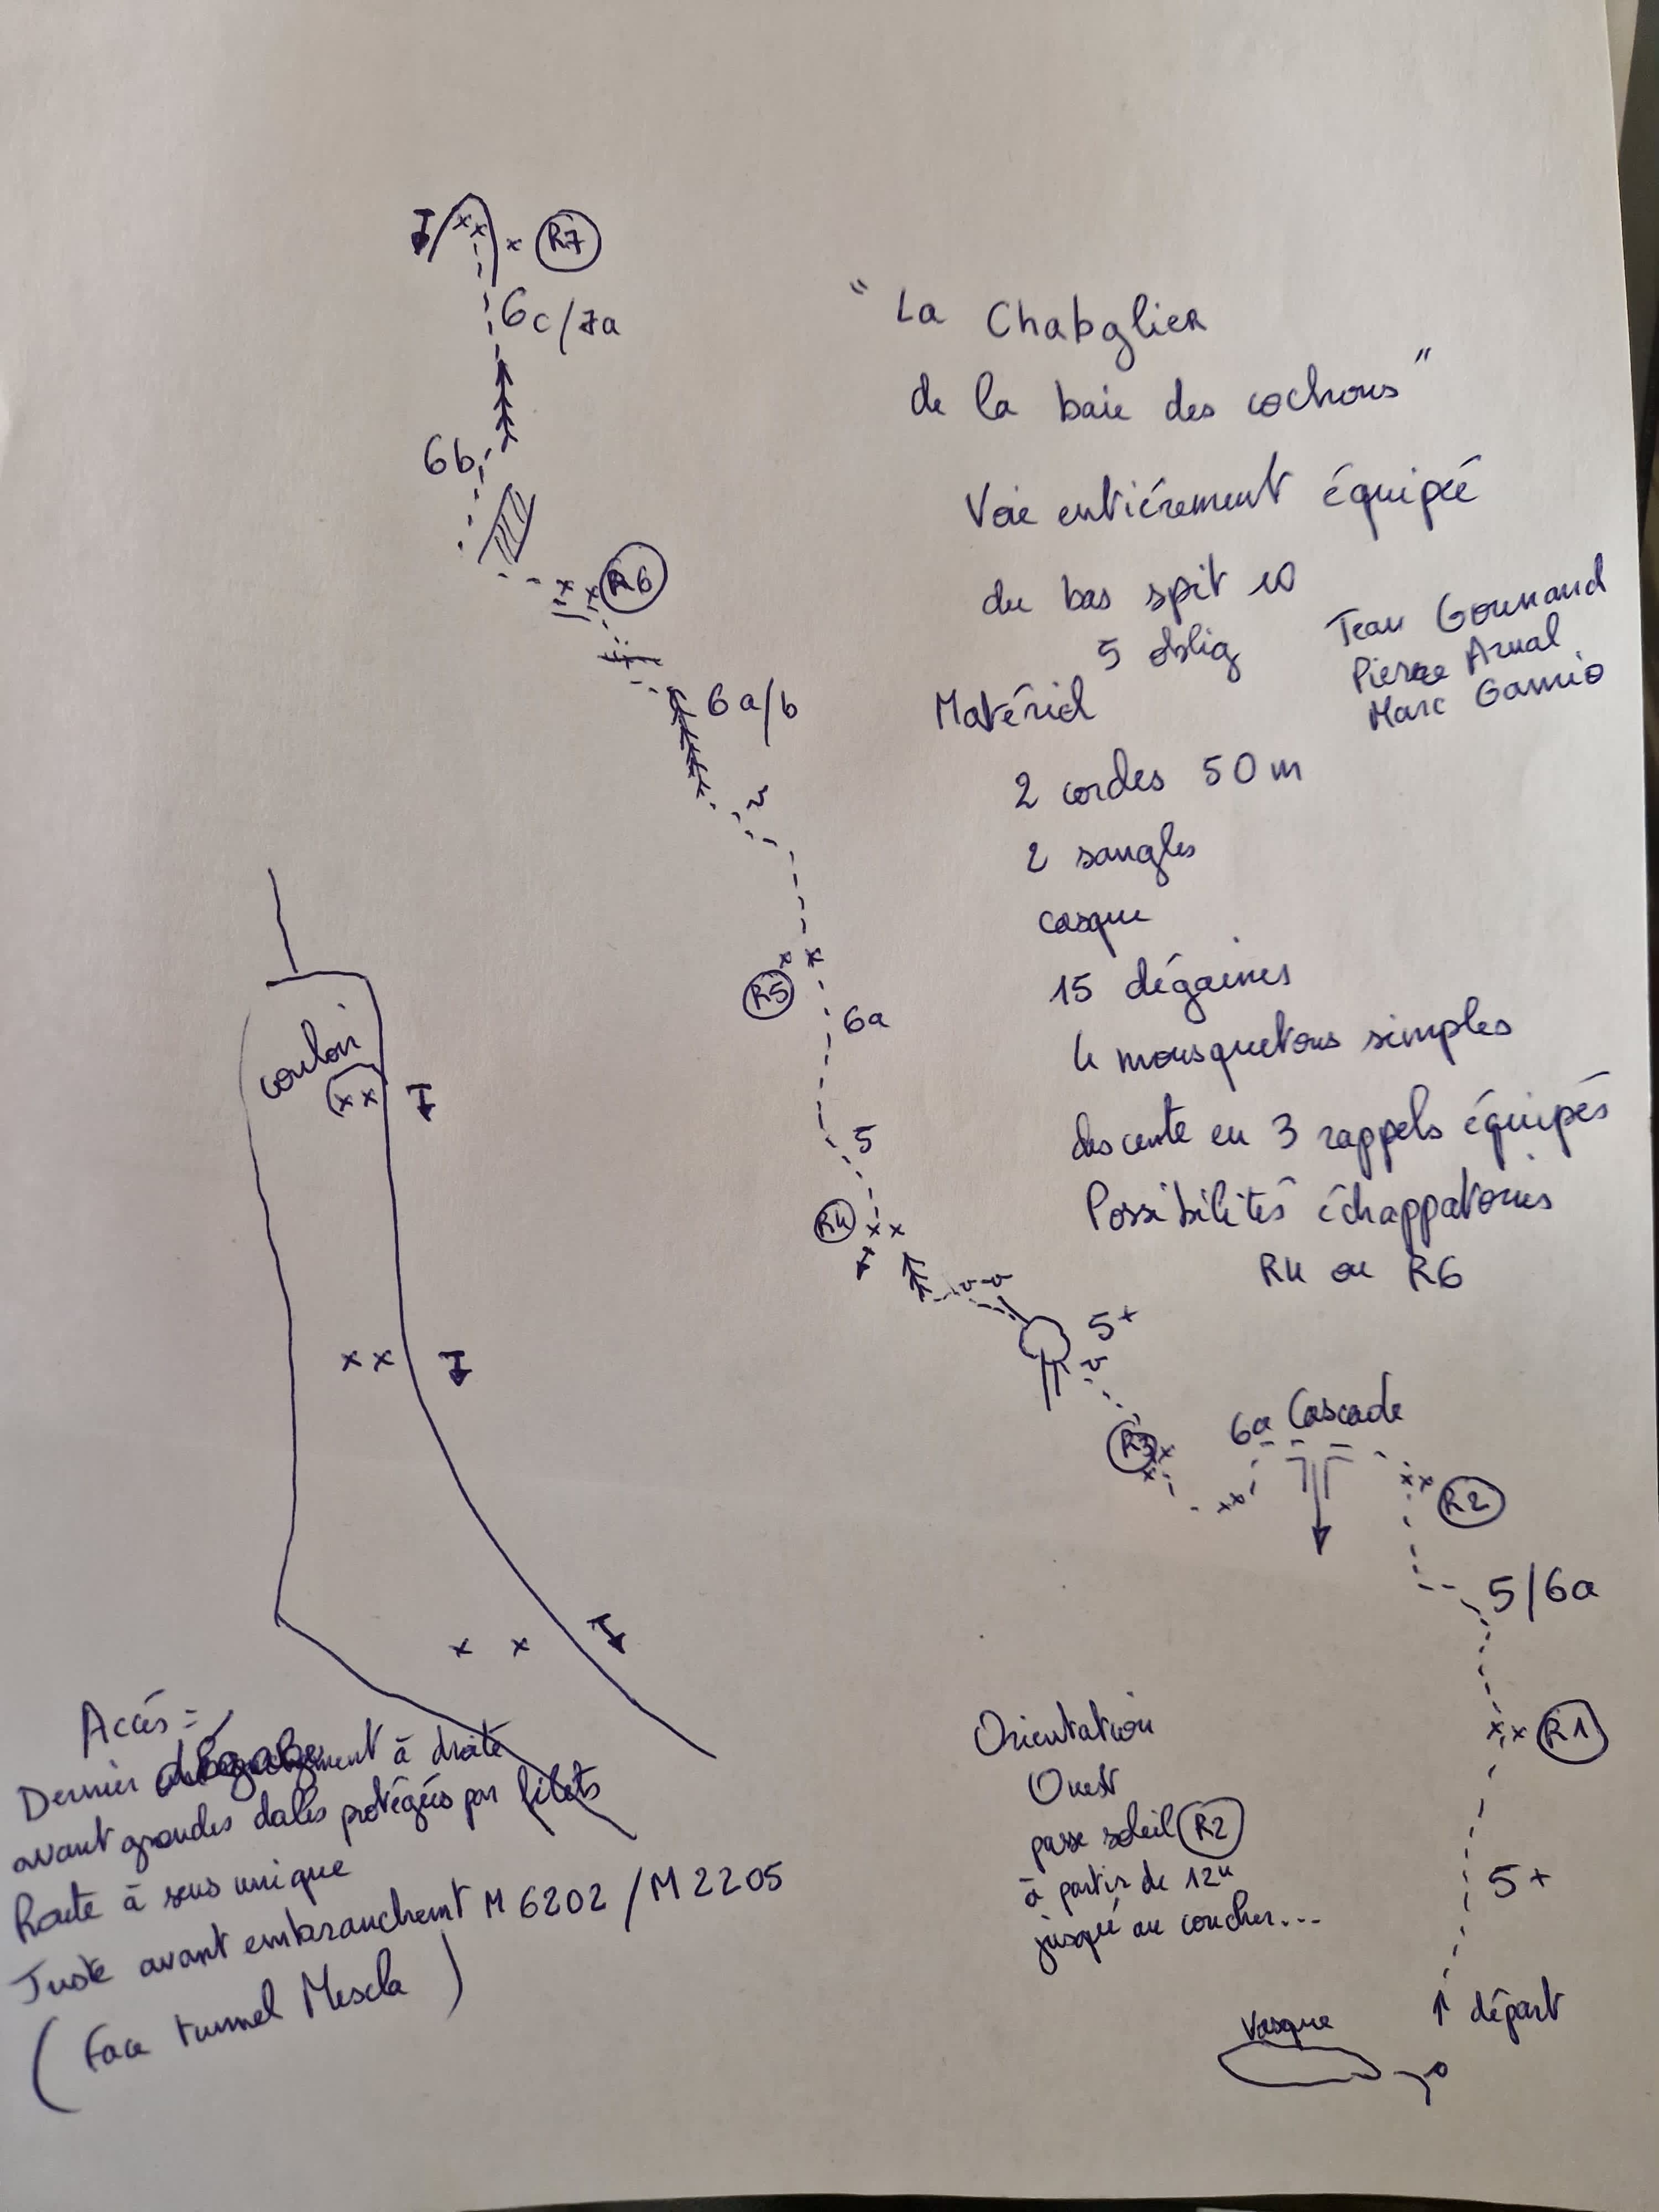 R7
6c/7a
6b
R6
6a/b
R5
6a
5
R4
5+
R3
6a Cascade
R2
5/6a
R1
5+
départ
Vasque
"La Chabglier
de la baie des cochons"
Voie entiérement équipée
du bas spit 10
5 oblig
Jean Gounand
Pierre Arnal
Marc Gamio
Matériel
2 cordes 50m
2 sangles
casque
15 dégaines
4 mousquetons simples
descente en 3 rappels équipés
Possibilités échappatoires
R4 ou R6
couloir
Orientation
Ouest
passe soleil R2
à partir de 12h
jusqu'au coucher...
Accés =
Dernier à droite
avant grandes dalles protégées par filets
Route à sens unique
Juste avant embranchemt M6202/M2205
(Face tunnel Mescla)